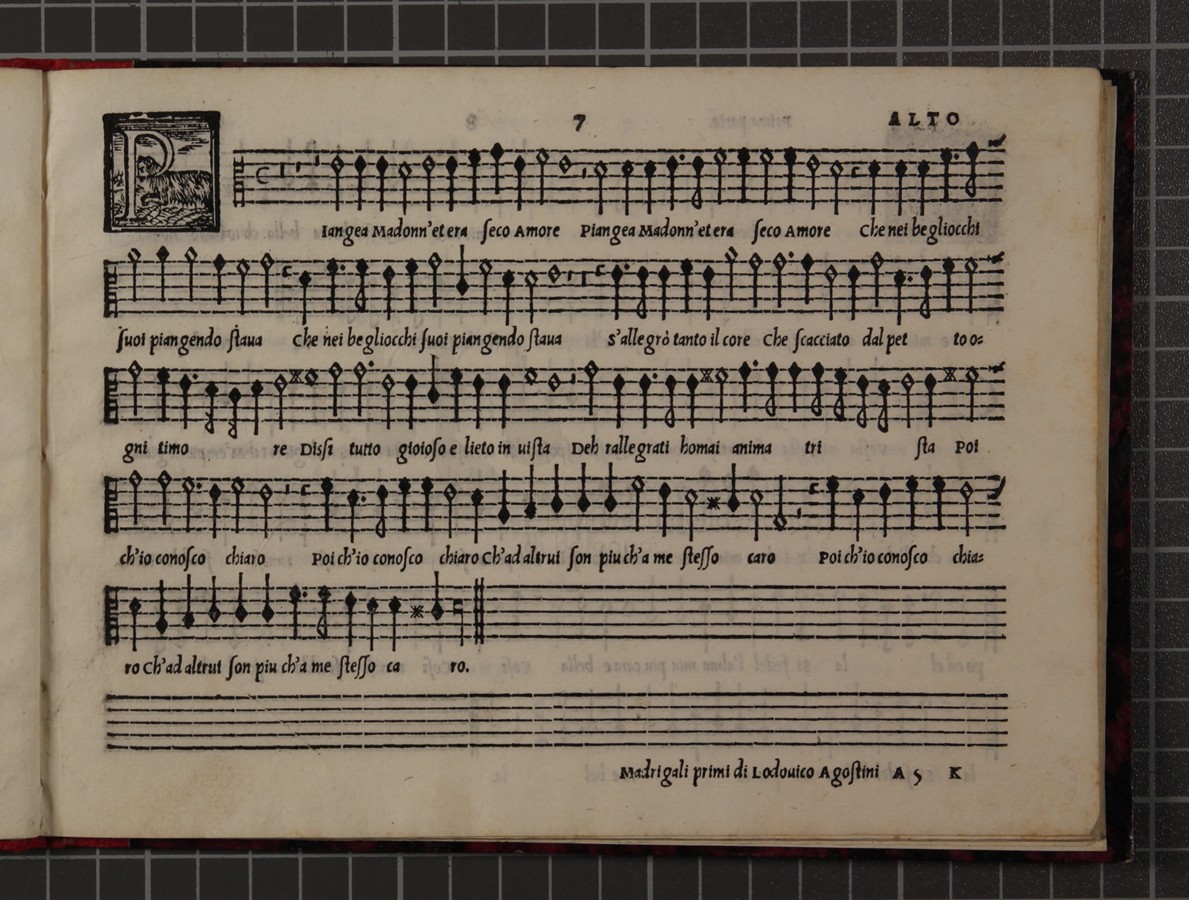 7 ALTO
PIangea Madonn'et era ſeco Amore Piangea Madonn'et era ſeco Amore Che nei begliocchi
ſuoi piangendo ſtaua Che nei begliocchi ſuoi piangendo ſtaua S'allegrò tanto il core Che ſcacciato dal pet to o=
gni timo re Diſſi tutto gioioſo e lieto in uiſta Deh rallegrati homai anima tri ſta Poi
ch'io conoſco chiaro Poi ch'io conoſco chiaro Ch'ad altrui ſon piu ch'a me ſteſſo caro Poi ch'io conoſco chia=
ro Ch'ad altrui ſon piu ch'a me ſteſſo ca ro.
Madrigali primi di Lodouico Agoſtini A 5 K